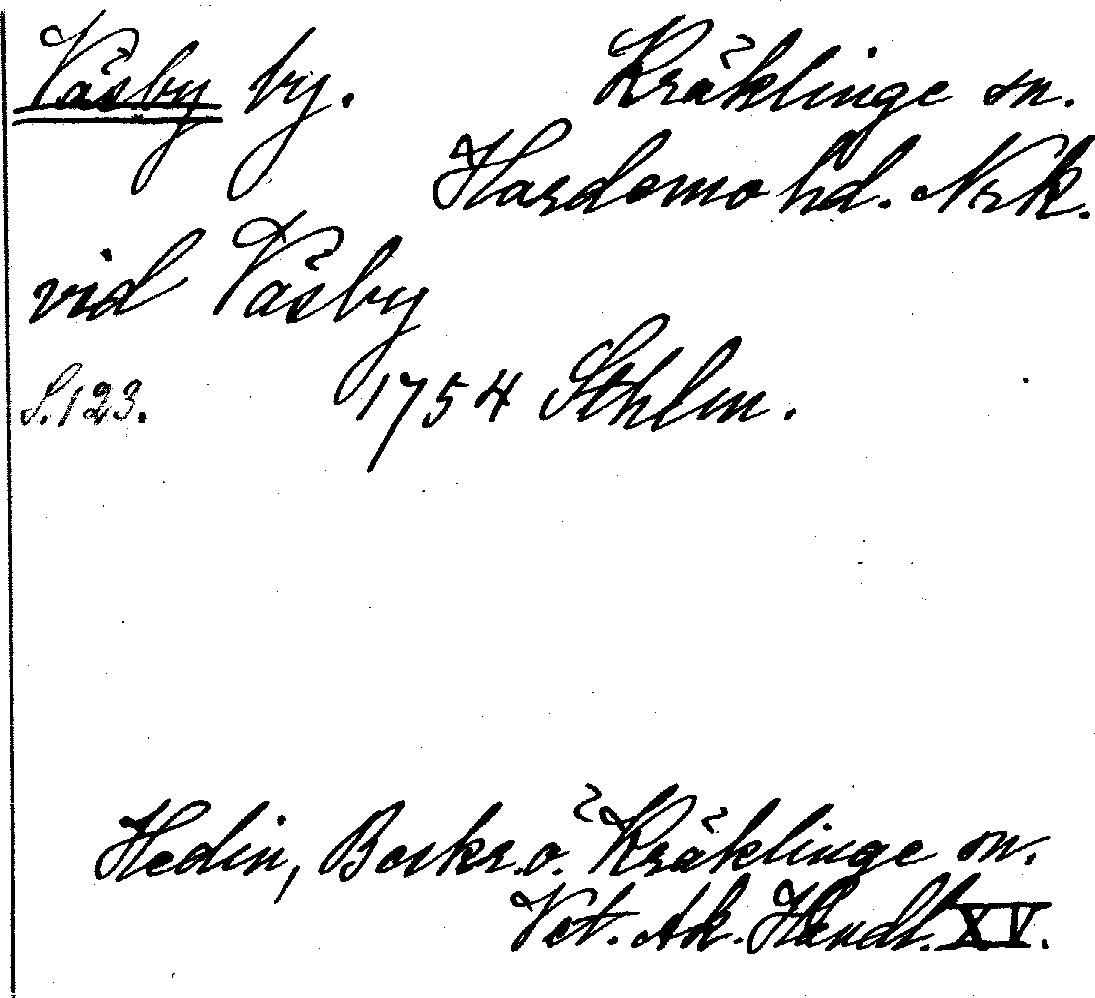 Väsby by. Kräklinge sn.
Hardemo hd. Nrk.
vid Väsby
S. 123. 1754 Sthlm.
Hedin, Beskr. ö. Kräklinge sn.
Vet. Ak. Handl. XV.